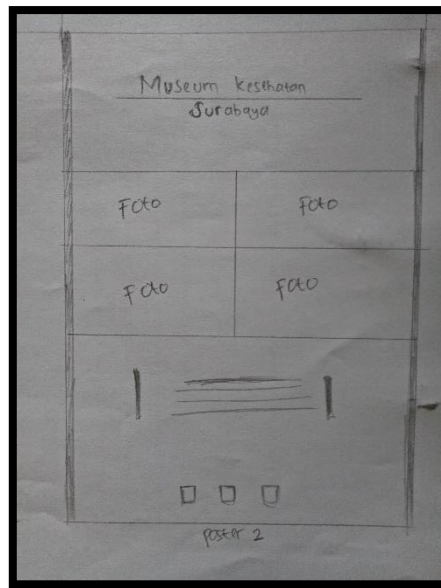 Museum Kesehatan
Surabaya
Foto
Foto
Foto
Foto
poster 2